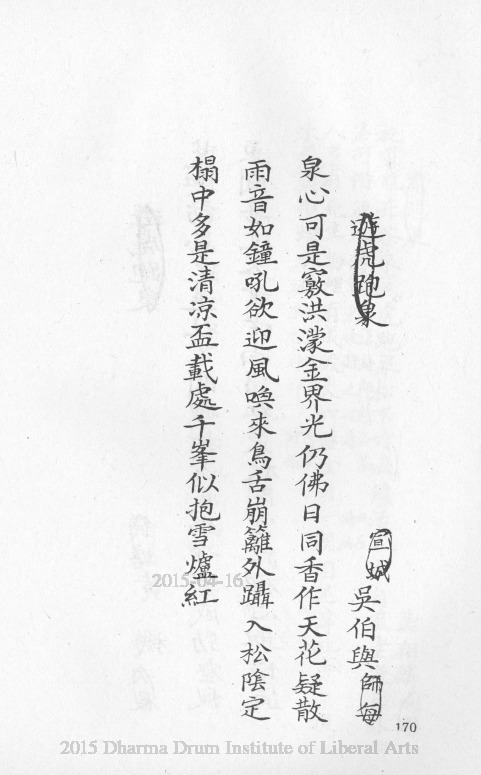 遊虎跑泉 宣城吳伯與師每
泉心可是竅洪濛金界光仍佛日同香作天花疑散
雨音如鐘吼欲迎風喚來鳥舌崩籬外躡入松陰定
榻中多是清凉盃載處千峯似抱雪爐紅
170
2015-04-16
2015 Dharma Drum Institute of Liberal Arts